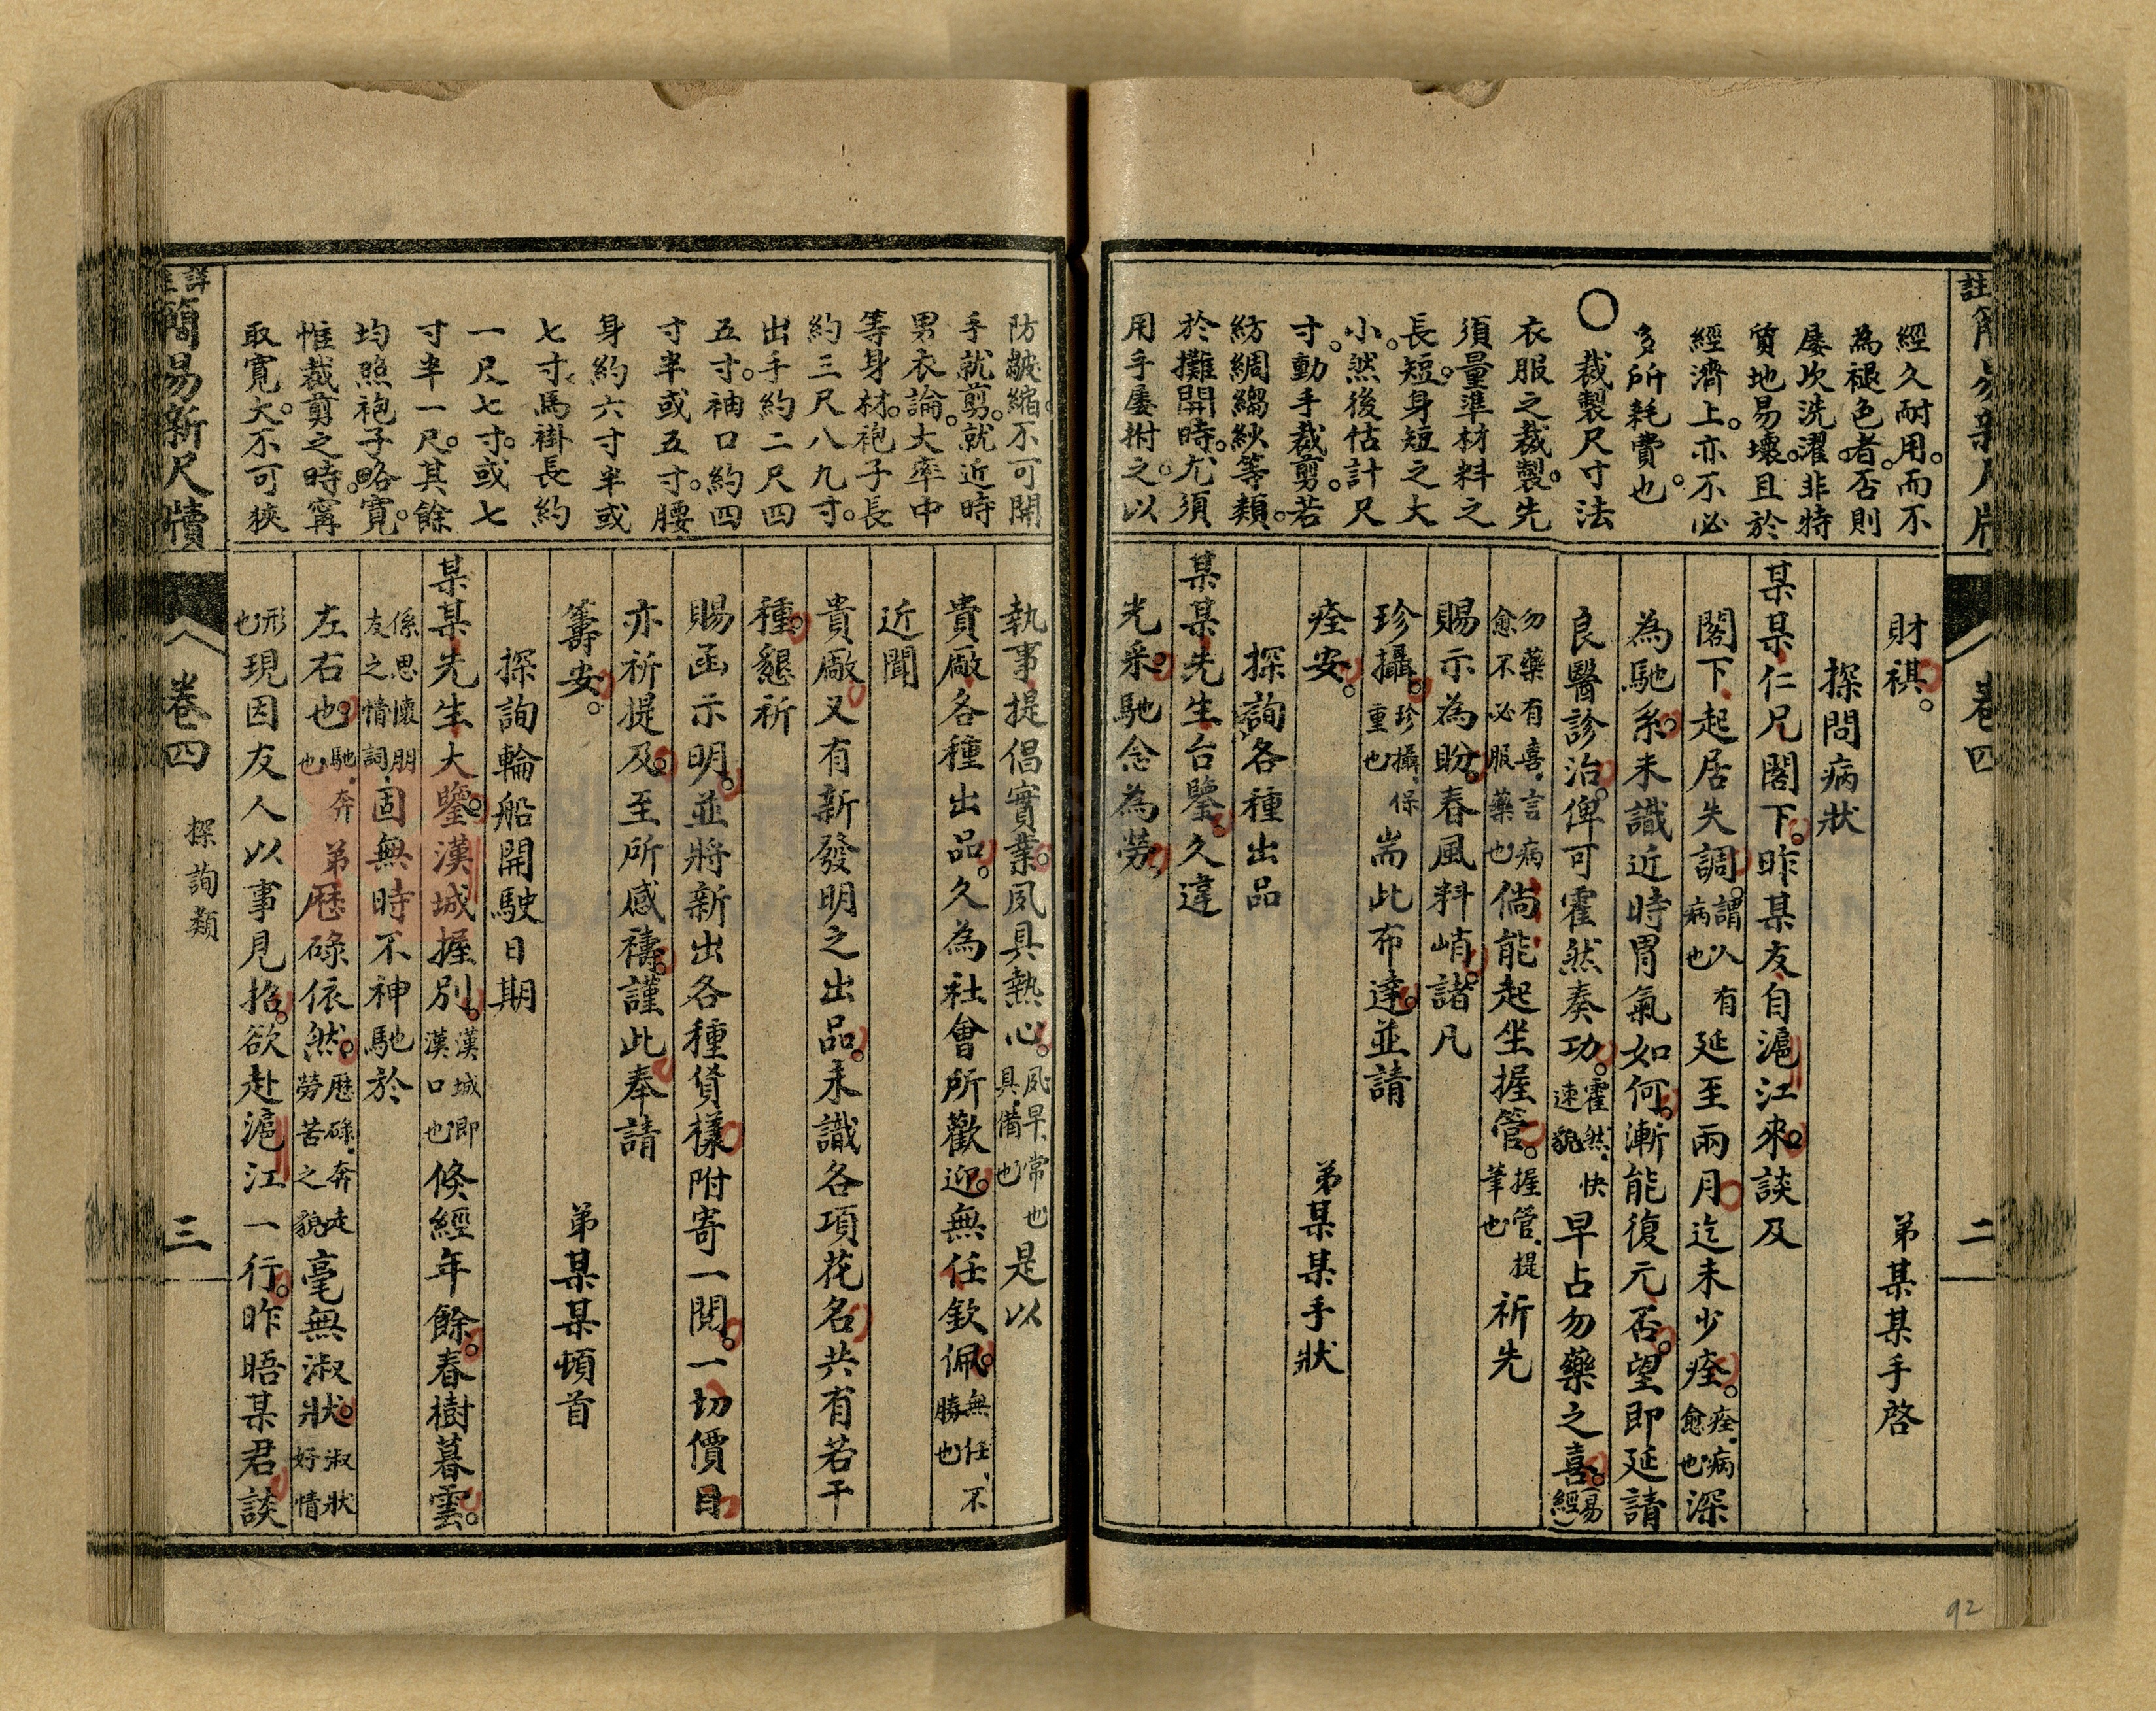 註簡易新尺牘
卷四
二
經久耐用。而不
為褪色者。否則
屡次洗濯。非特
質地易壞。且於
經濟上。亦不必
多所耗費也。
〇裁製尺寸法
衣服之裁製。先
須量準材料之
長短。身短之大
小。然後估計尺
寸。動手裁剪。若
紡綢縐紗等類。
於攤開時。尤須
用手屡拊之。以
財祺。 弟某某手啓
探問病狀
某某仁兄閣下。昨某友自滬江來。談及
閣下起居失調。謂人有病也延至兩月。迄未少痊。痊、病愈也深
為馳系。未識近時胃氣如何。漸能復元否。望即延請
良醫診治。俾可霍然奏功。霍然、快速貌早占勿藥之喜。(易經)
勿藥有喜、言病愈不必服藥也倘能起坐握管。握管、提筆也祈先
賜示為盼。春風料峭。諸凡
珍攝。珍攝、保重也耑此布達。並請
痊安。 弟某某手狀
探詢各種出品
某某先生台鑒。久違
光釆。馳念為勞。
防皺縮。不可開
手就剪。就近時
男衣論。大率中
等身材。袍子長
約三尺八九寸。
出手約二尺四
五寸。袖口約四
寸半或五寸。腰
身約六寸半或
七寸。馬褂長約
一尺七寸。或七
寸半一尺。其餘
均照袍子略寬。
惟裁剪之時。寗
取寬大。不可狹
執事提倡實業。夙具熱心。夙早、常也具、備也是以
貴廠各種出品。久為社會所歡迎。無任欽佩。無任、不勝也
近聞
貴廠又有新發明之出品。未識各項花名。共有若干
種。懇祈
賜函示明。並將新出各種貨樣。附寄一閱。一切價目
亦祈提及。至所感禱。謹此奉請
籌安。 弟某某頓首
探詢輪船開駛日期
某某先生大鑒。漢城握別。漢城即漢口也倐經年餘。春樹暮雲。
係思懷朋友之情詞固無時不神馳於
左右也。馳、奔也弟歷碌依然。歷碌、奔走勞苦之貌毫無淑狀。淑狀好情
形也現因友人以事見招。欲赴滬江一行。昨晤某君。談
詳註簡易新尺牘
卷四
探詢類
三
92